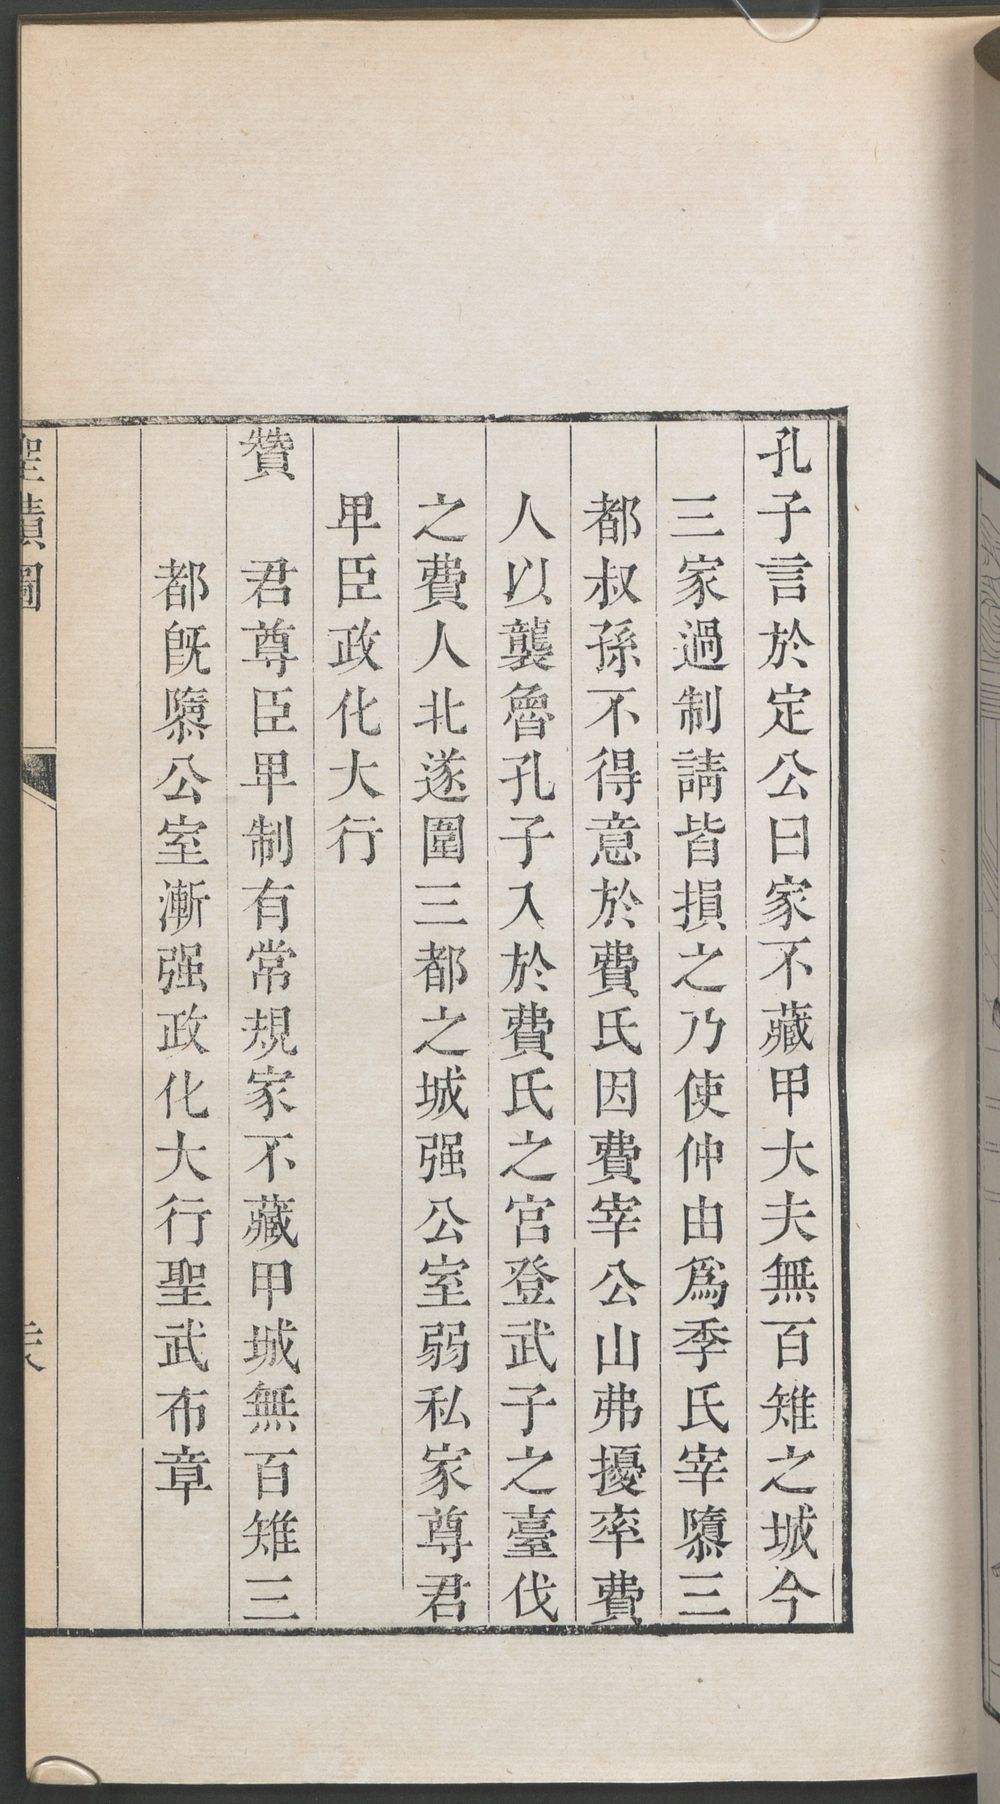 孔子言於定公曰家不藏甲大夫無百雉之城今
三家過制請皆損之乃使仲由爲季氏宰隳三
都叔孫不得意於費氏因費宰公山弗擾率費
人以襲魯孔子入於費氏之宮登武子之臺伐
之費人北遂圍三都之城强公室弱私家尊君
卑臣政化大行
贊　君尊臣卑制有常規家不藏甲城無百雉三
都旣隳公室漸强政化大行聖武布章
聖蹟圖